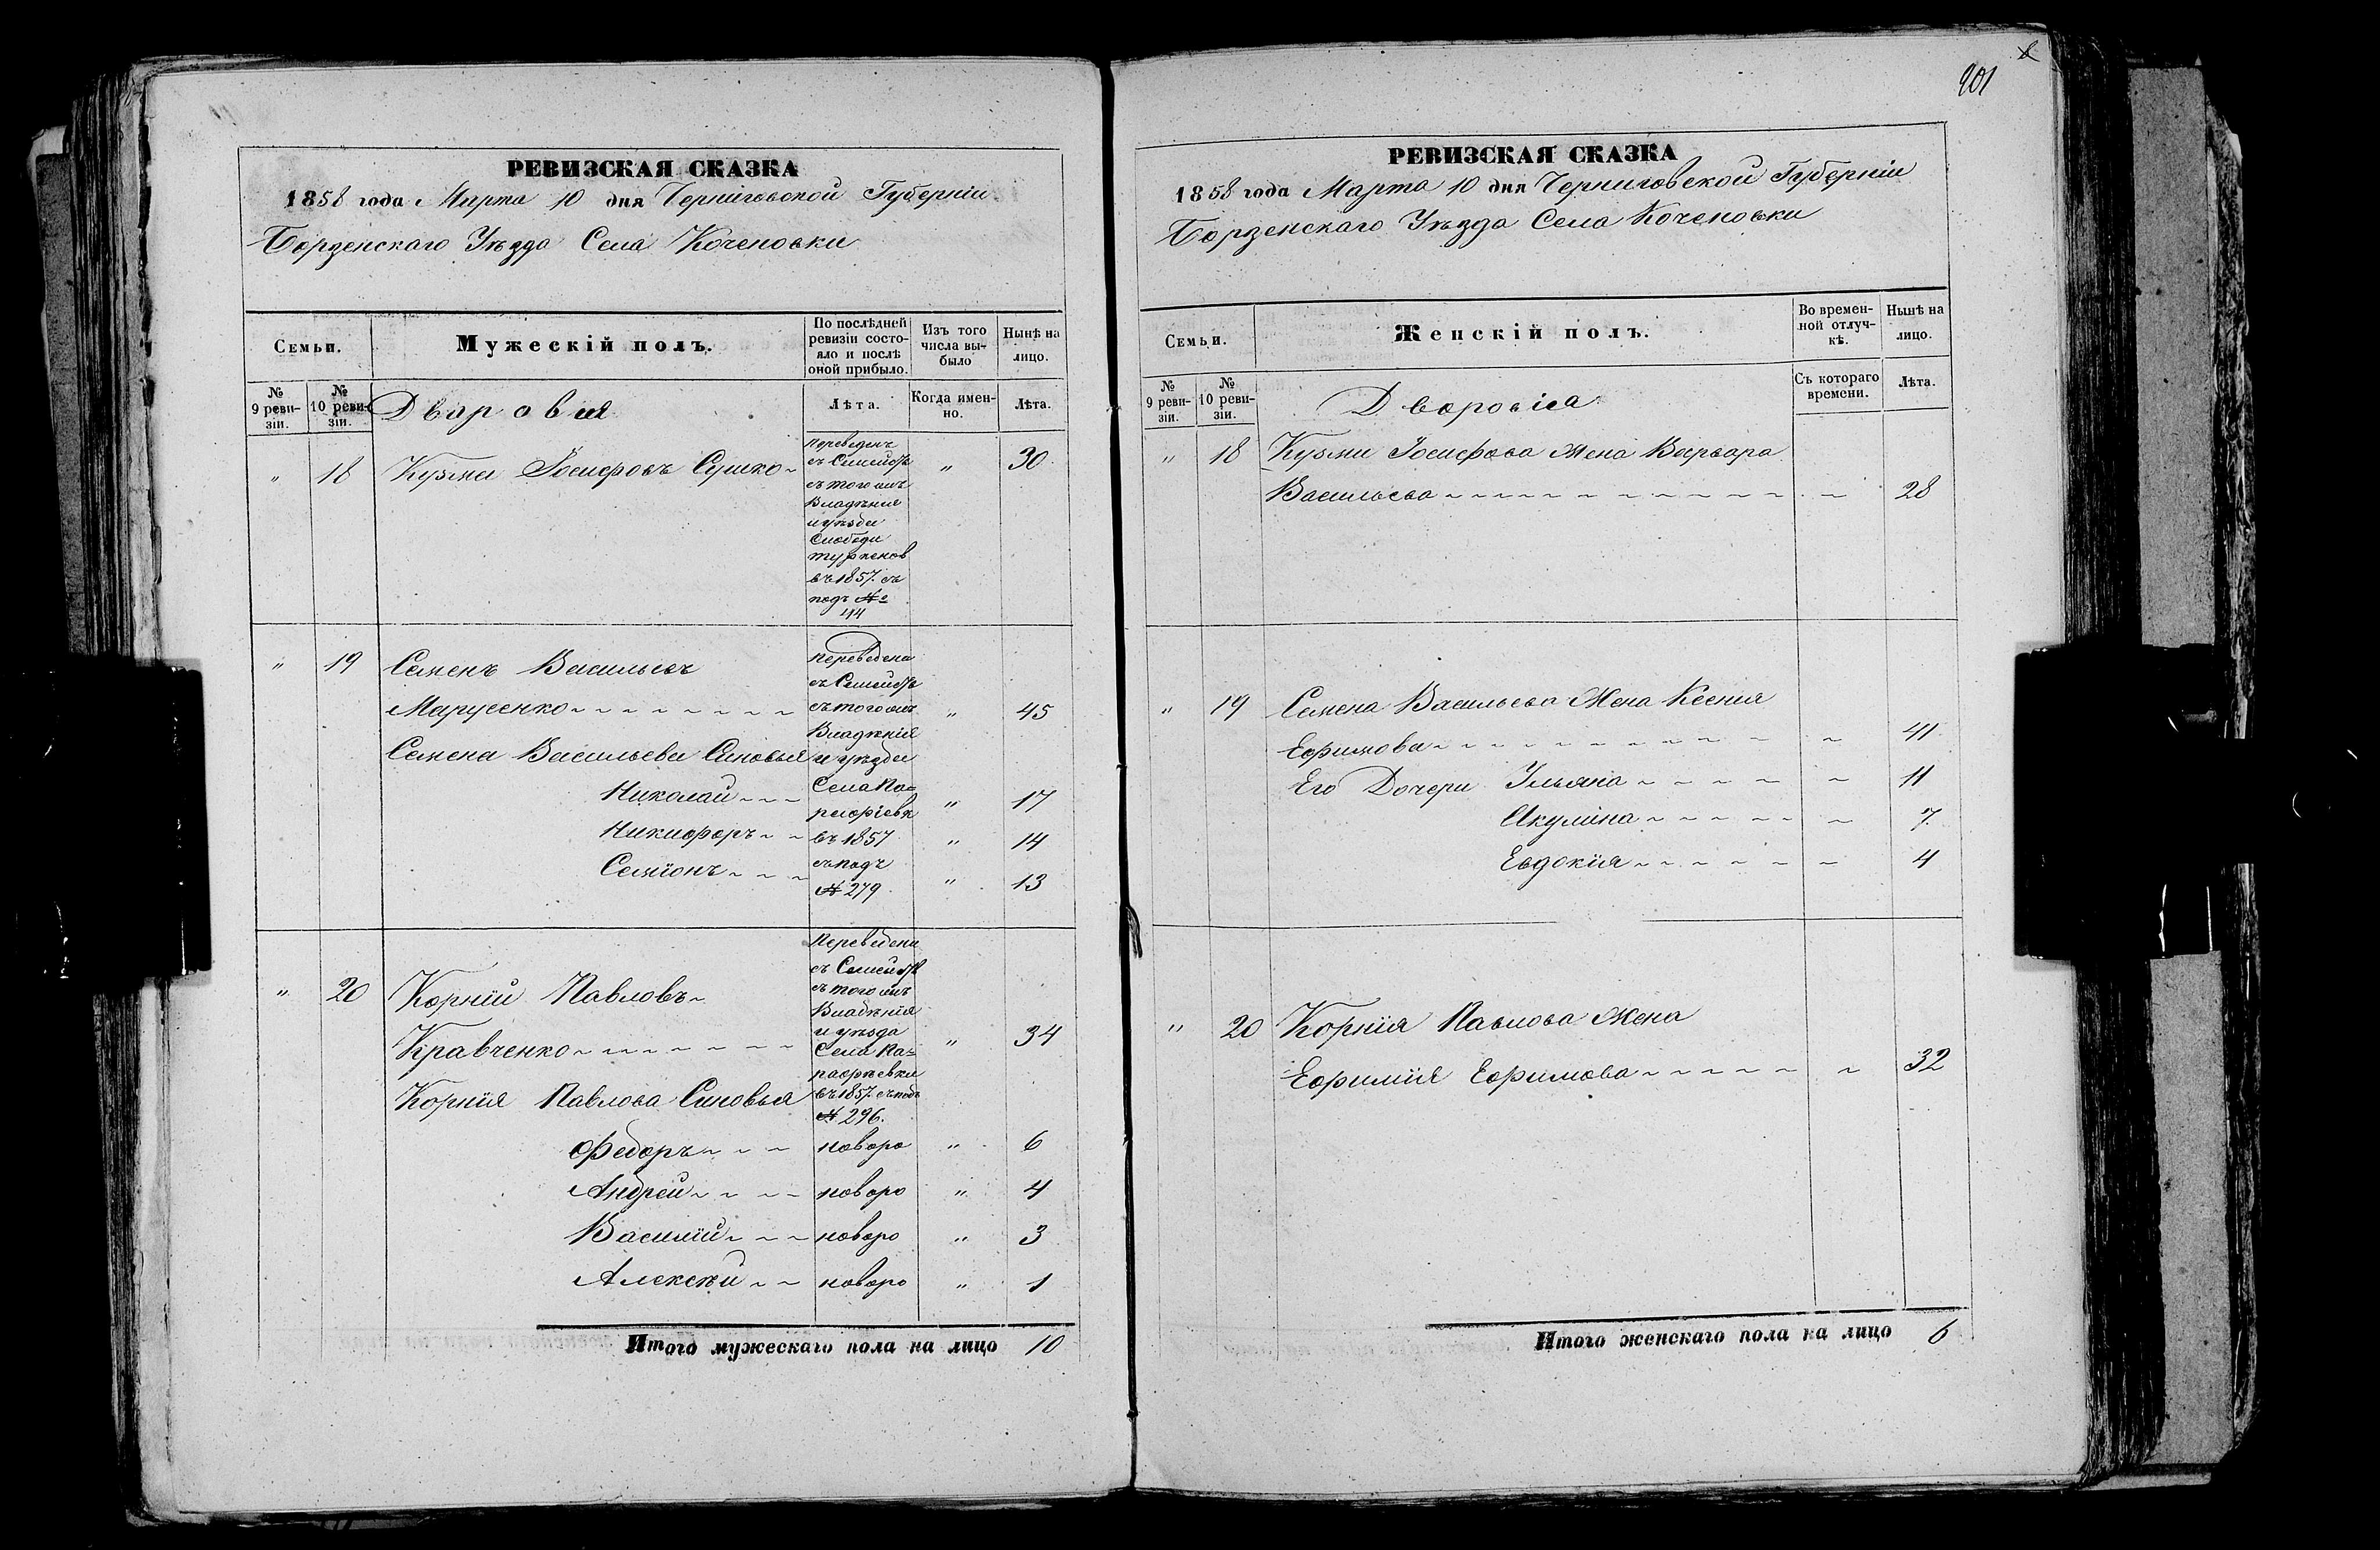 РЕВИЗСКАЯ СКАЗКА
1858 года Марта 10 дня Черниговской Губерніи
Борзенскаго Уѣзда Села Коченовки
Семьи.
Мужескій полъ.
По послѣдней ревизіи состояло и послѣ оной прибыло.
Изъ того числа выбыло
Нынѣ на лицо.
№ 9 ревизіи.
№ 10 ревизіи.
Дворовыя
Лѣта.
Когда именно.
Лѣта.
" 18 Кузма Іосифовъ Сушко " 30
Переведенъ
съ Семейств
съ того жъ
Владѣнія
и уѣзда
Слободи
въ 1857. съ
подъ №
114
" 19 Семенъ Васильевъ
Марусенко " 45
Семена Васильева Синовья
Николай " 17
Никифоръ " 14
Семіонъ " 13
Переведена
съ Семейств
съ того жъ
Владѣнія
и уѣзда
Села Па=
рафіевк
въ 1857
съ подъ
№ 279
" 20 Корній Павловъ
Кравченко " 34
Корнія Павлова Синовья
Переведени
съ Семейств
съ того жъ
Владѣнія
и уѣзда
Села Па=
рафѣевки
въ 1857. съ подъ
№ 296.
Федоръ новоро " 6
Андрей новоро " 4
Василій новоро " 3
Алексѣй новоро " 1
Итого мужескаго пола на лицо 10
901
РЕВИЗСКАЯ СКАЗКА
1858 года Марта 10 дня Черниговской Губерніи
Борзенскаго Уѣзда Села Коченовки
Семьи.
Женскій полъ.
Во временной отлучкѣ.
Нынѣ на лицо.
№ 9 ревизіи.
№ 10 ревизіи.
Дворовіеа
Съ котораго времени.
Лѣта.
" 18 Кузми Іосифова Жена Варвара
Васильева 28
" 19 Семена Васильева Жена Ксенія
Ефимова 41
Его Дочери Ульяна 11
Акулина 7
Евдокія 4
" 20 Корнія Павлова Жена
Ефимія Ефимова 32
Итого женскаго пола на лицо 6